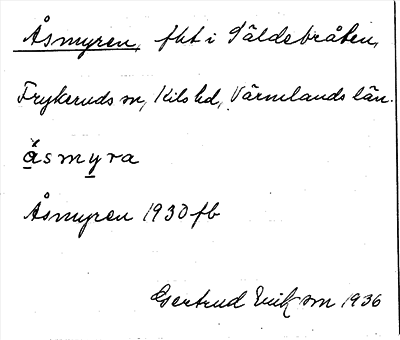 Åsmyren, fht i Säldebråten,
Frykeruds sn, Kils hd, Värmlands län.
åsmyra
Åsmyren 1930 fb
Gertrud Erikson 1936